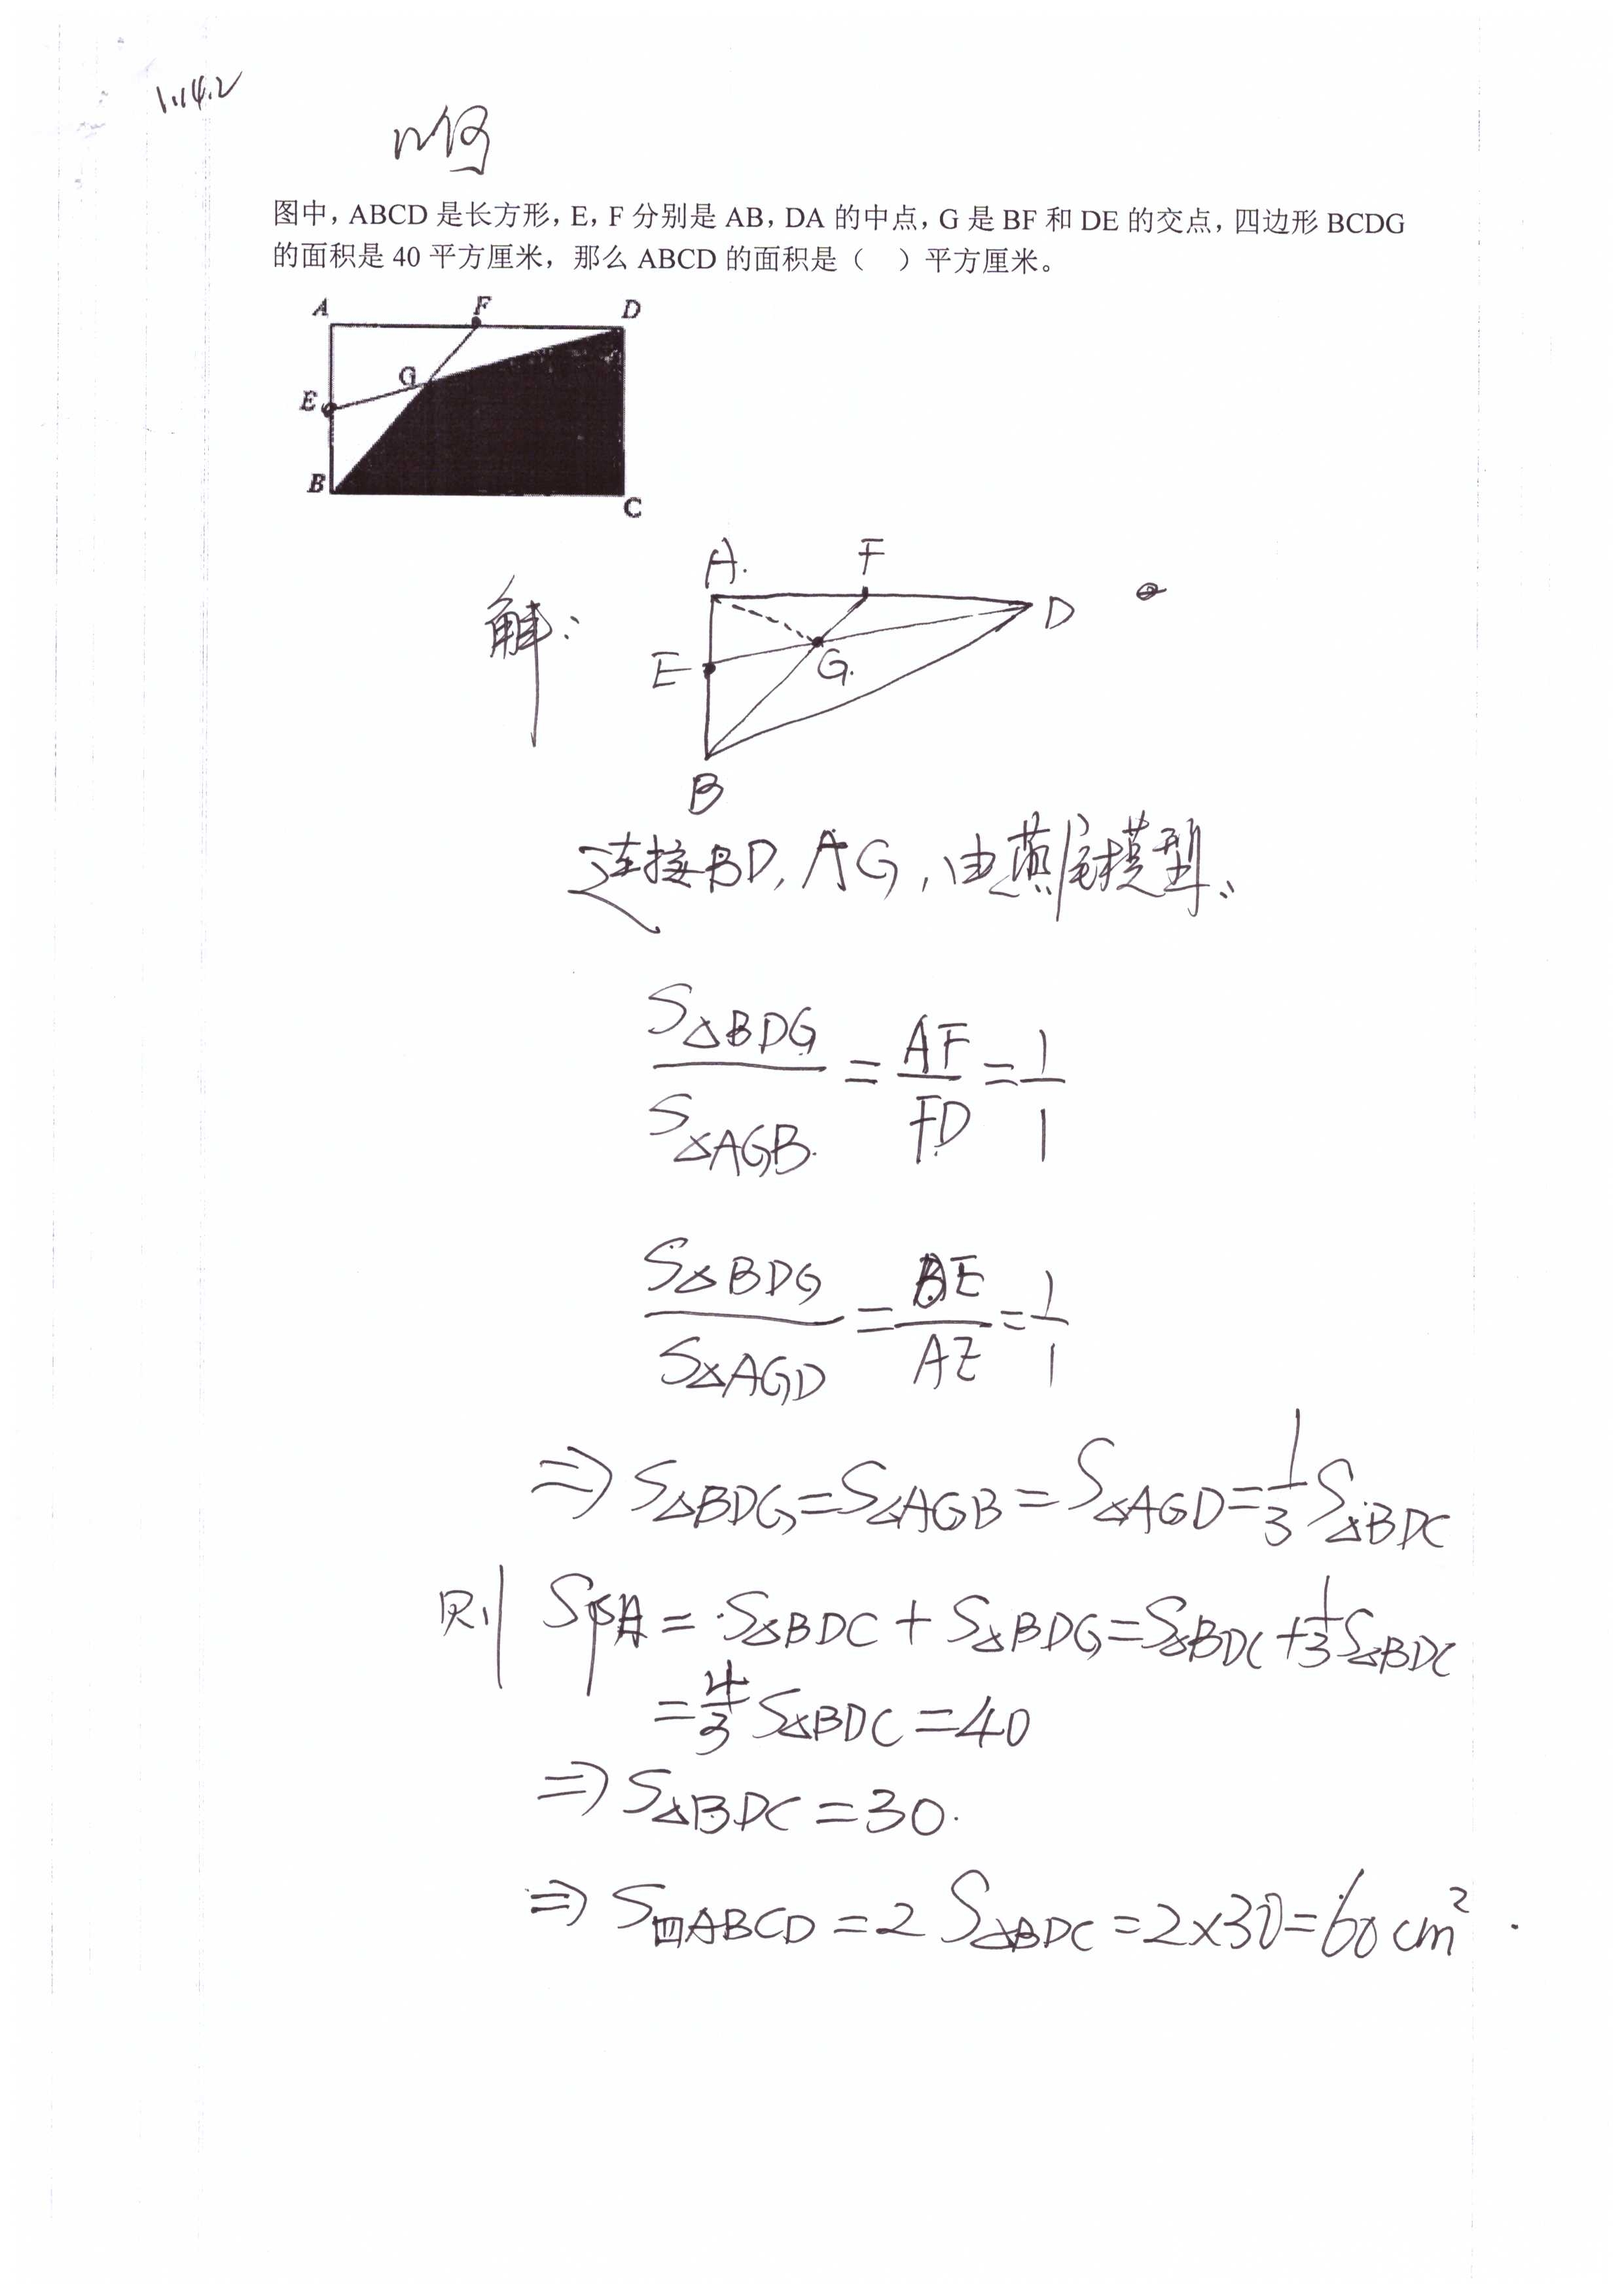 1.14.2
几何
图中，ABCD 是长方形，E，F 分别是 AB，DA 的中点，G 是 BF 和 DE 的交点，四边形 BCDG
的面积是 40 平方厘米，那么 ABCD 的面积是（ ）平方厘米。
A F D
G
E
B
C
解：
A. F
D
E G.
B
连接BD, AG, 由燕尾模型、
S△BDG / S△AGB. = AF / FD = 1 / 1
S△BDG / S△AGD = BE / AE = 1 / 1
⇒ S△BDG = S△AGB = S△AGD = 1/3 S△BDC
则 S阴 = S△BDC + S△BDG = S△BDC + 1/3 S△BDC
= 4/3 S△BDC = 40
⇒ S△BDC = 30.
⇒ S四ABCD = 2 S△BDC = 2×30 = 60 cm²